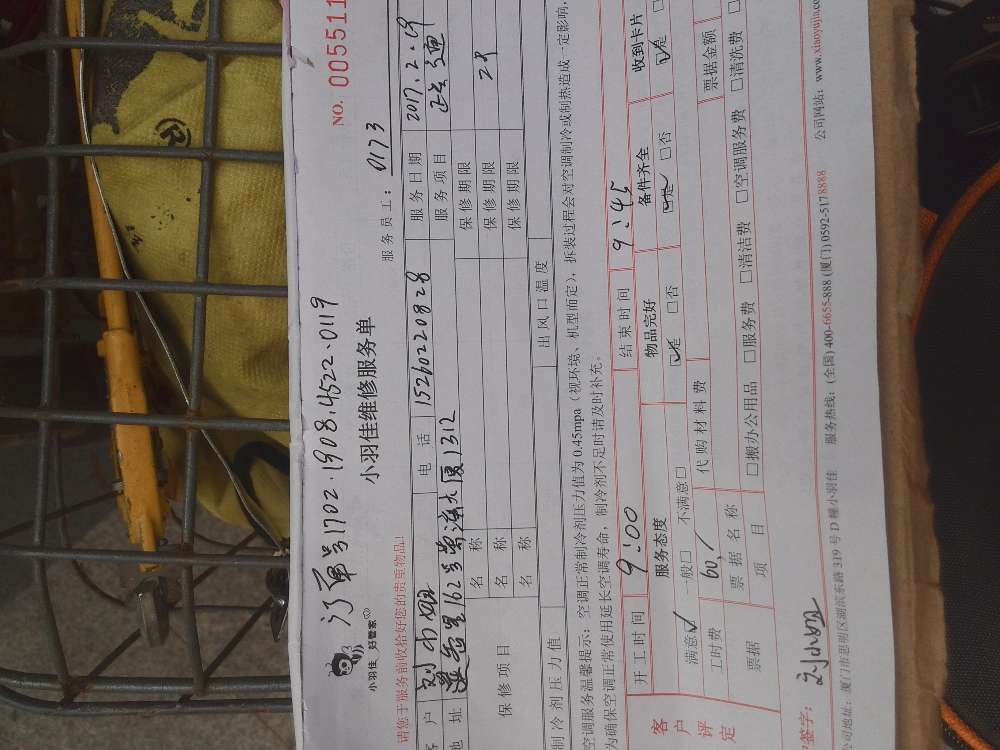 订单号1702.1908.4522.0119
小羽佳 好管家
小羽佳维修服务单
NO. 005511
服务员工: 0173
请您于服务前收拾好您的贵重物品!
户 刘小姐 电 话 15260220828 服务日期 2017.2.19
地 址 莲岳里162号 大厦1312 服务项目
保修项目 名 称 保修期限
名 称 保修期限
名 称 保修期限
制冷剂压力值 出风口温度
空调服务温馨提示: 空调正常制冷剂压力值为0.45mpa (视环境、机型而定), 拆装过程会对空调制冷或制热造成一定影响,
为确保空调正常使用延长空调寿命, 制冷剂不足时请及时补充。
客户评定
开工时间 9:00 结束时间 9:45
服务态度 物品完好 备件齐全 收到卡片
满意☑ 一般□ 不满意□ ☑是 □否 ☑是 □否 ☑是
工时费 60,/ 代购材料费
票据 票据名称 票据金额
项 目 □搬办公用品 □服务费 □清洁费 □空调服务费 □清洗费
户签字: 刘小姐
公司地址: 厦门市思明区湖滨东路319号D幢小羽佳 服务热线: (全国)400-6655-888 (厦门)0592-5178888 公司网站: www.xiaoyujia.co